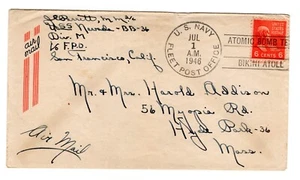 U.S. NAVY
JUL
1
A.M.
1946
FLEET POST OFFICE
ATOMIC BOMB TE
BIKINI ATOLL
6 CENTS 6
USS Nevada-BB-36
Div. M
% F.P.O.
San Francisco, Calif
air mail
Mr. & Mrs. Harold Addison
56 Myopia Rd.
Hyde Park-36
Mass.
Air Mail